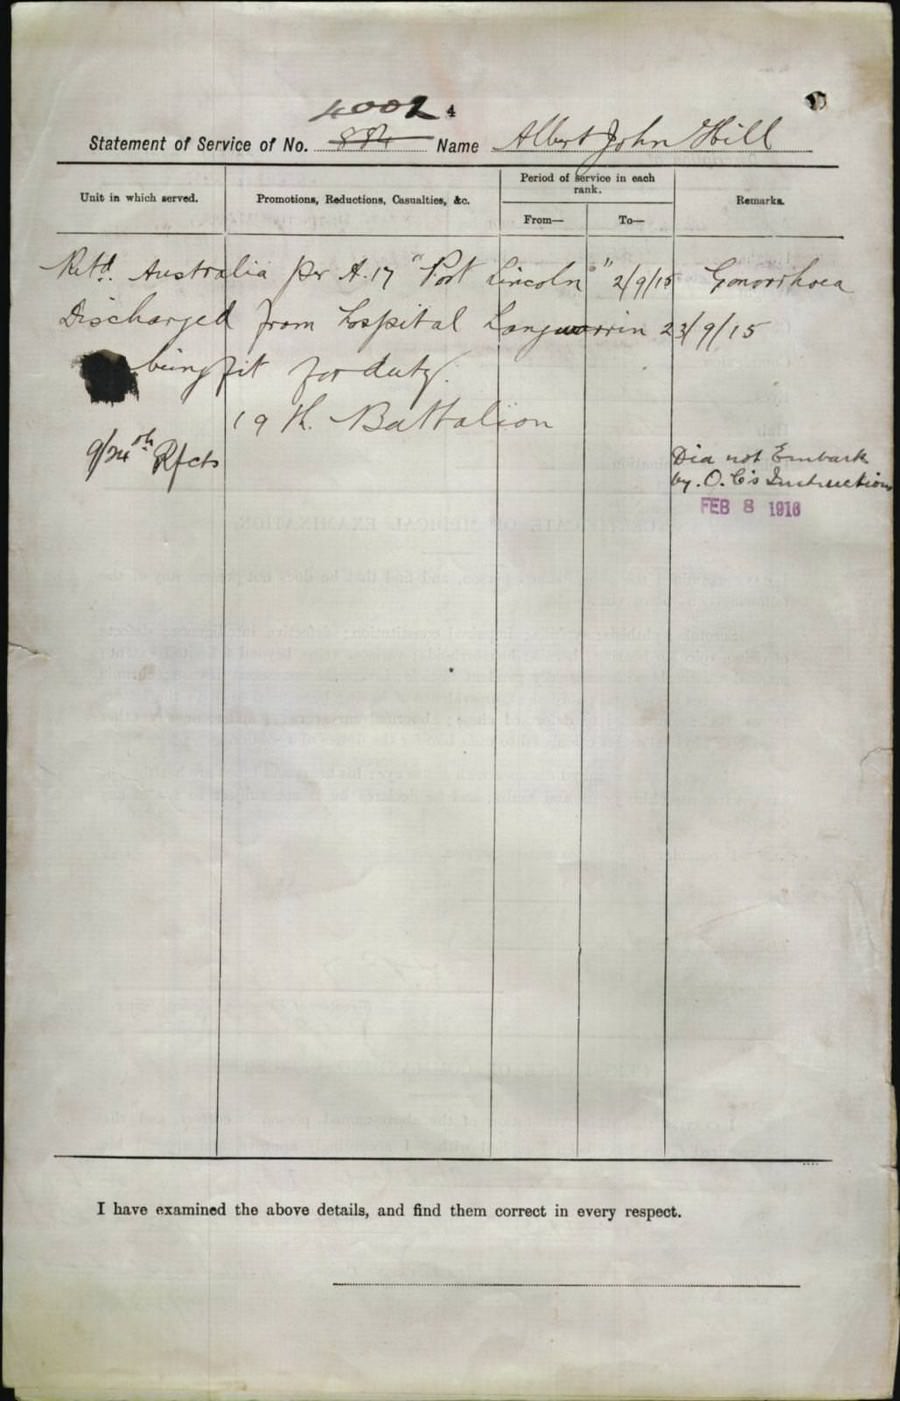 4002 4
Statement of Service of No. 884 Name Albert John Hill
Unit in which served. Promotions, Reductions, Casualties, &c. Period of service in each rank. Remarks.
From— To—
Retd. Australia per A.17 "Port Lincoln" 2/9/15 Gonorrhoea
Discharged from Hospital Langwarrin 23/9/15
being fit for duty.
19th. Battalion
9/ Rfcts
Did not Embark
by. O.C's Instructions
FEB 8 1916
I have examined the above details, and find them correct in every respect.